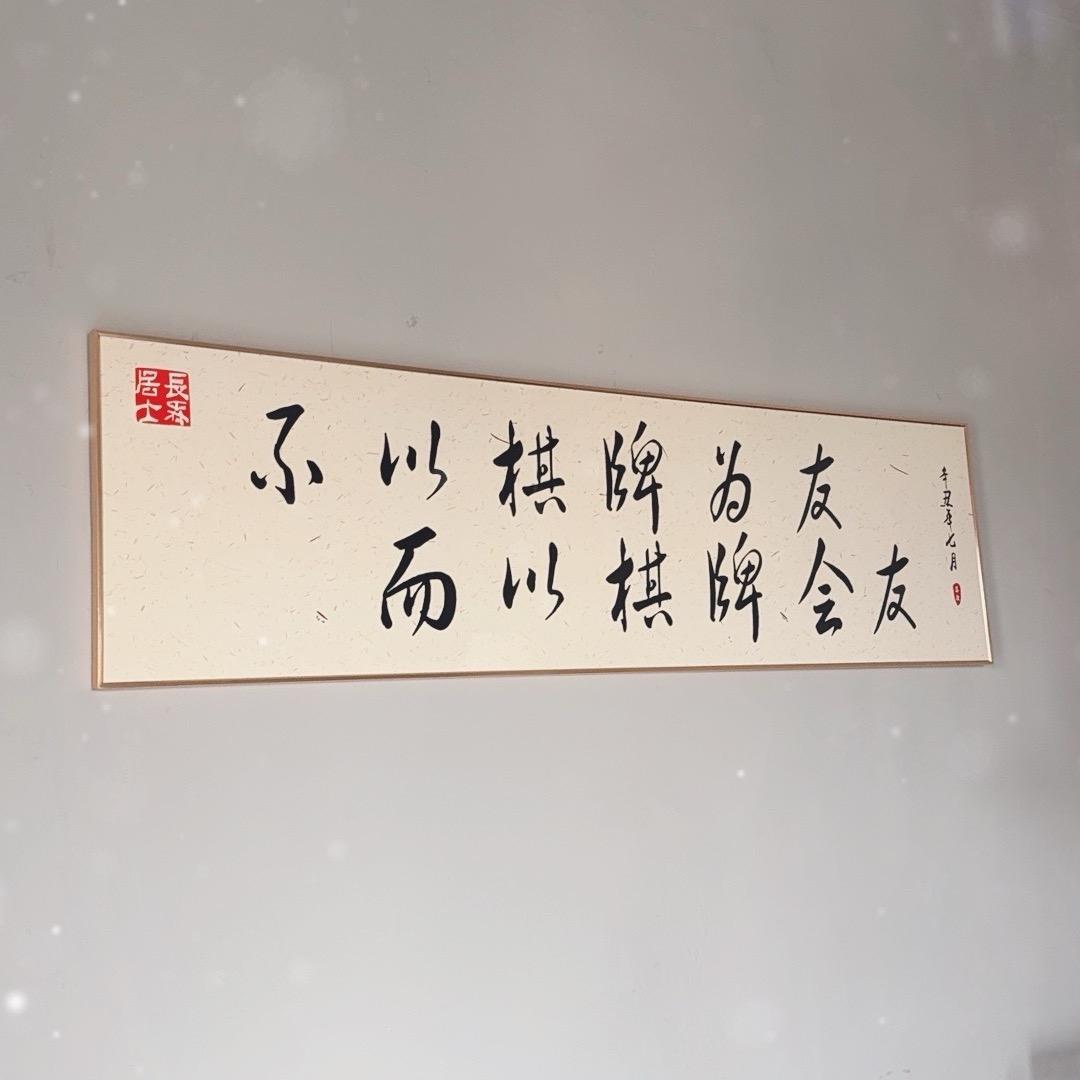 長森居士
不以棋牌为友
而以棋牌会友
辛丑年七月